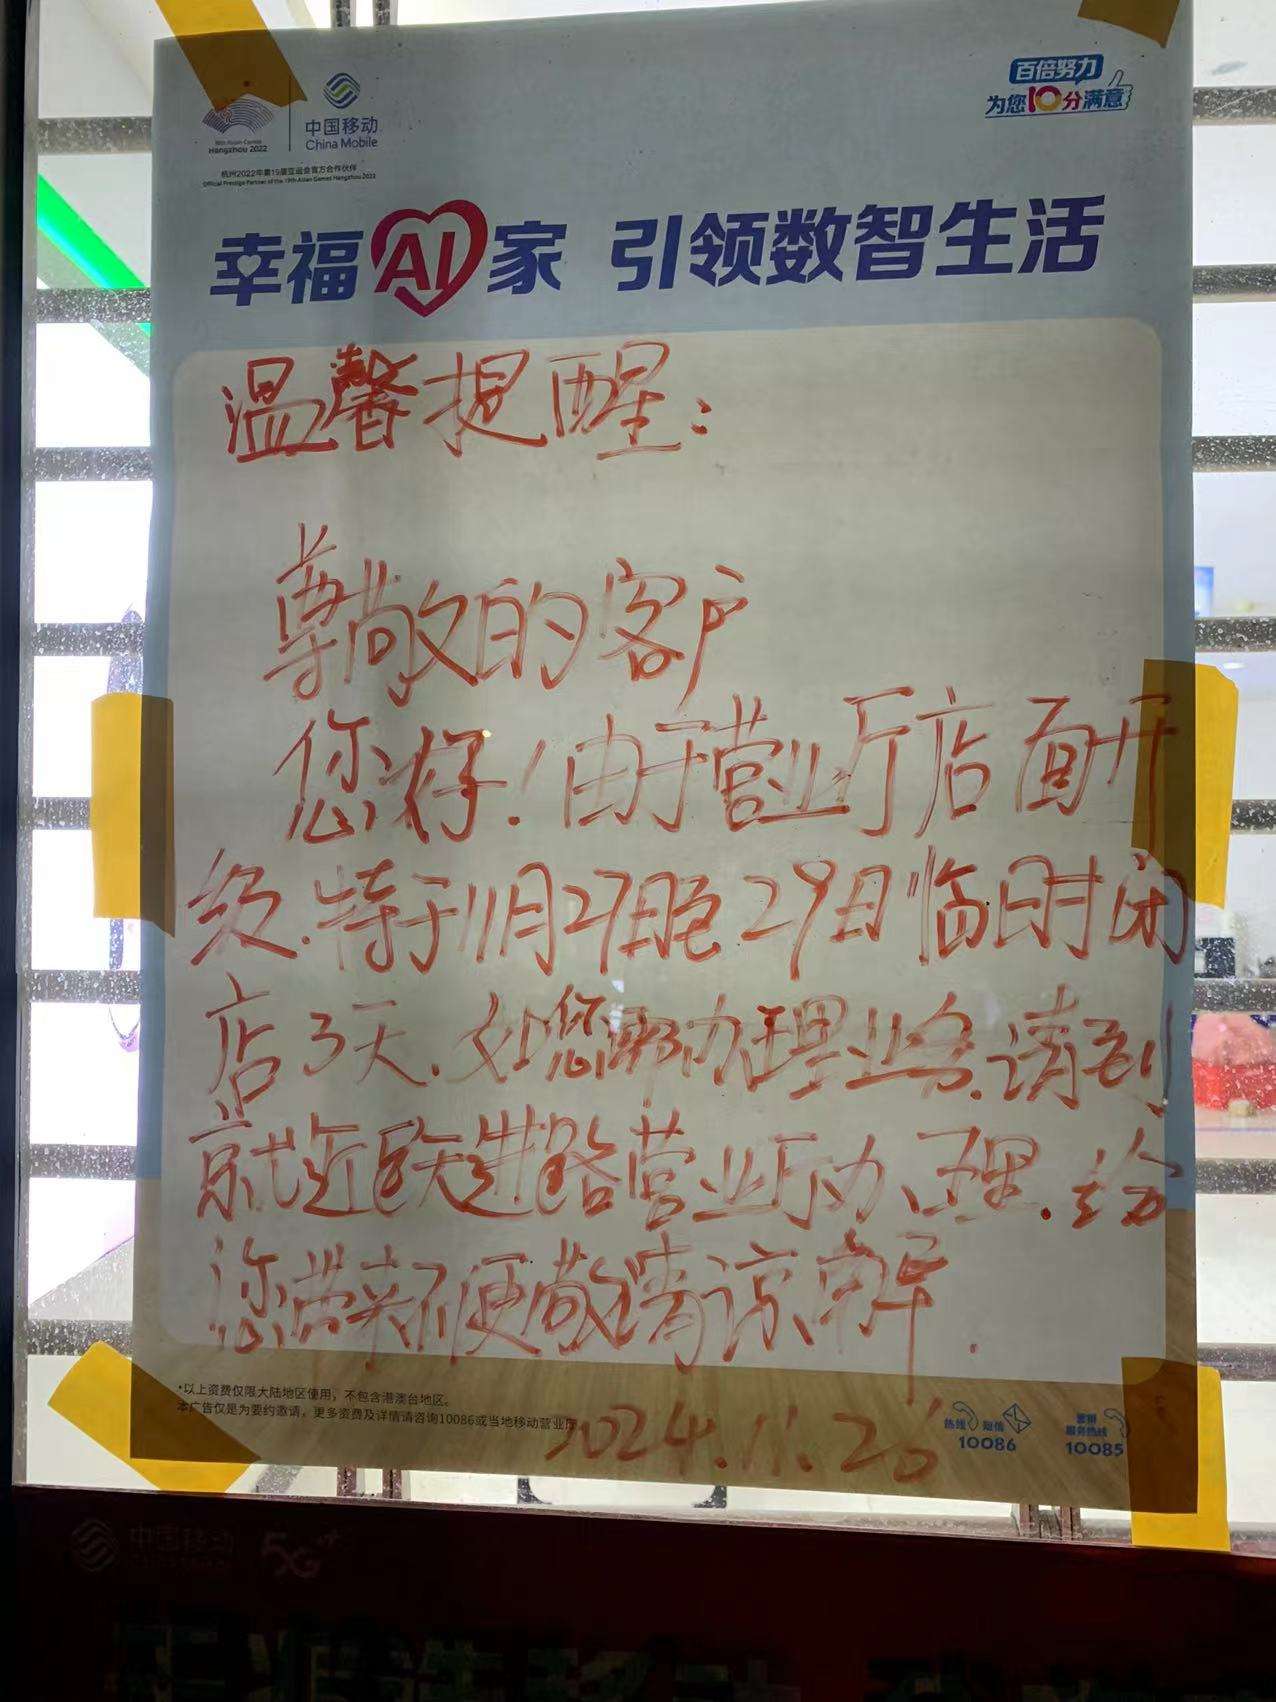 19th Asian Games
Hangzhou 2022
中国移动
China Mobile
杭州2022年第19届亚运会官方合作伙伴
Official Prestige Partner of the 19th Asian Games Hangzhou 2022
百倍努力
为您10分满意
幸福AI家 引领数智生活
温馨提醒：
尊敬的客户
您好！由于营业厅店面升
级.特于11月27日至29日临时闭
店3天.如您需办理业务.请到
就近跃进路营业厅办理.给
您带来不便敬请谅解.
2024.11.26
*以上资费仅限大陆地区使用，不包含港澳台地区。
本广告仅是为要约邀请，更多资费及详情请咨询10086或当地移动营业厅
热线 短信
10086
服务热线
10085
中国移动
5G